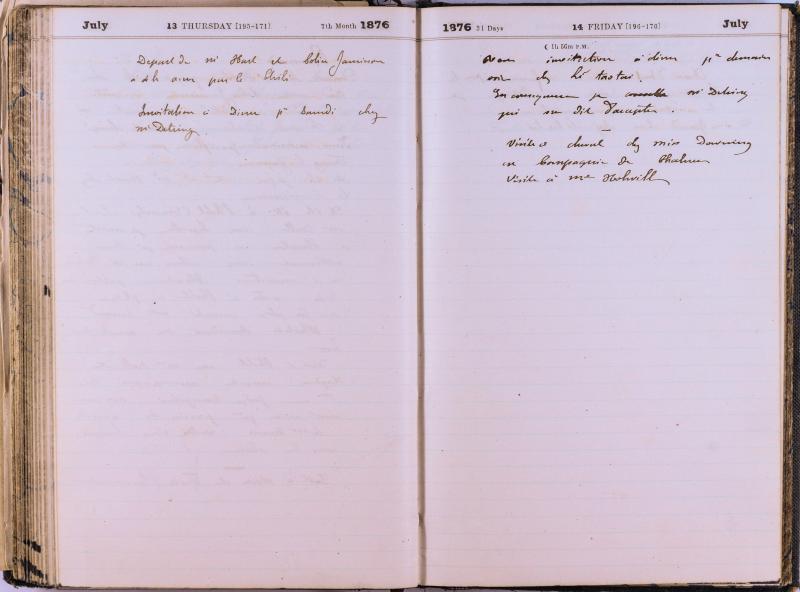 July 13 THURSDAY [195-171] 7th Month 1876
Depart de Mr Hart et Colin Jamieson
à 4 h a.m par le Chili
Invitation à Diner pr Samdi chez
Mr Detring
1876 31 Days 14 FRIDAY [196-170] July
☾ 1h 56m P.M.
invitation à diner pr demain
soir chez
En conséquence je Mr Detring
qui me dit d'accepter
Visite à cheval chez Miss Downing
en Compagnie de
Visite à Mme